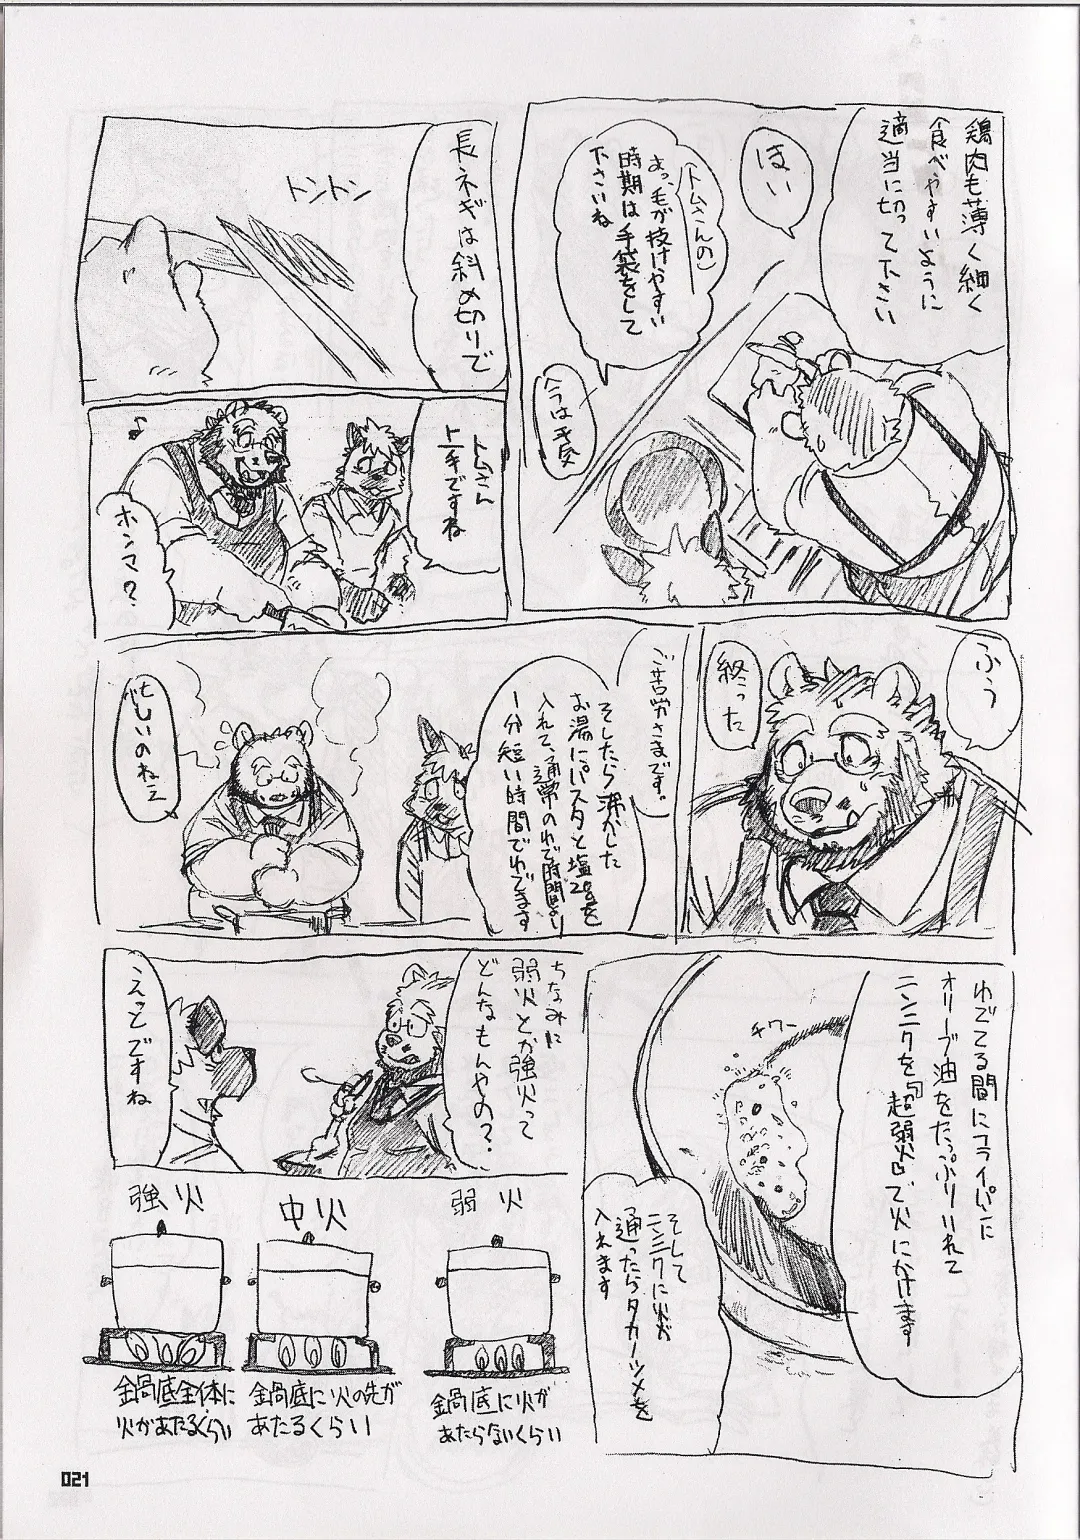 鶏肉も薄く細く
食べやすいように
適当に切って下さい
ほい
トムさんの
毛が抜けやすい
時期は手袋をして
下さいね
今は
長ネギは斜め切りで
トントン
トムさん
上手ですね
ホンマ？
ふぅ
終った
ご苦労さまです。
そしたら沸かした
お湯にパスタと塩2gを
入れて、通常のゆで時間より
1分短い時間でゆでます
忙しいのねぇ
ゆでてる間にフライパンに
オリーブ油をたっぷりいれて
ニンニクを『超弱火』で火にかけます
チワー
そして
ニンニクに火が
通ったらタカノツメを
入れます
ちなみに
弱火とか強火って
どんなもんやの？
えっとですね
強火
鍋底全体に
火があたるくらい
中火
鍋底に火の先が
あたるくらい
弱火
鍋底に火が
あたらないくらい
021